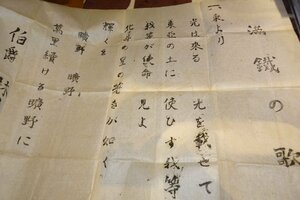 満鉄の歌
(一)東より
光は来る 光を載せて
東亜の土に 使ひす我等
我等が使命 見よ
北斗の星の著きが如く
輝くを
曠野 曠野
萬里続ける曠野に